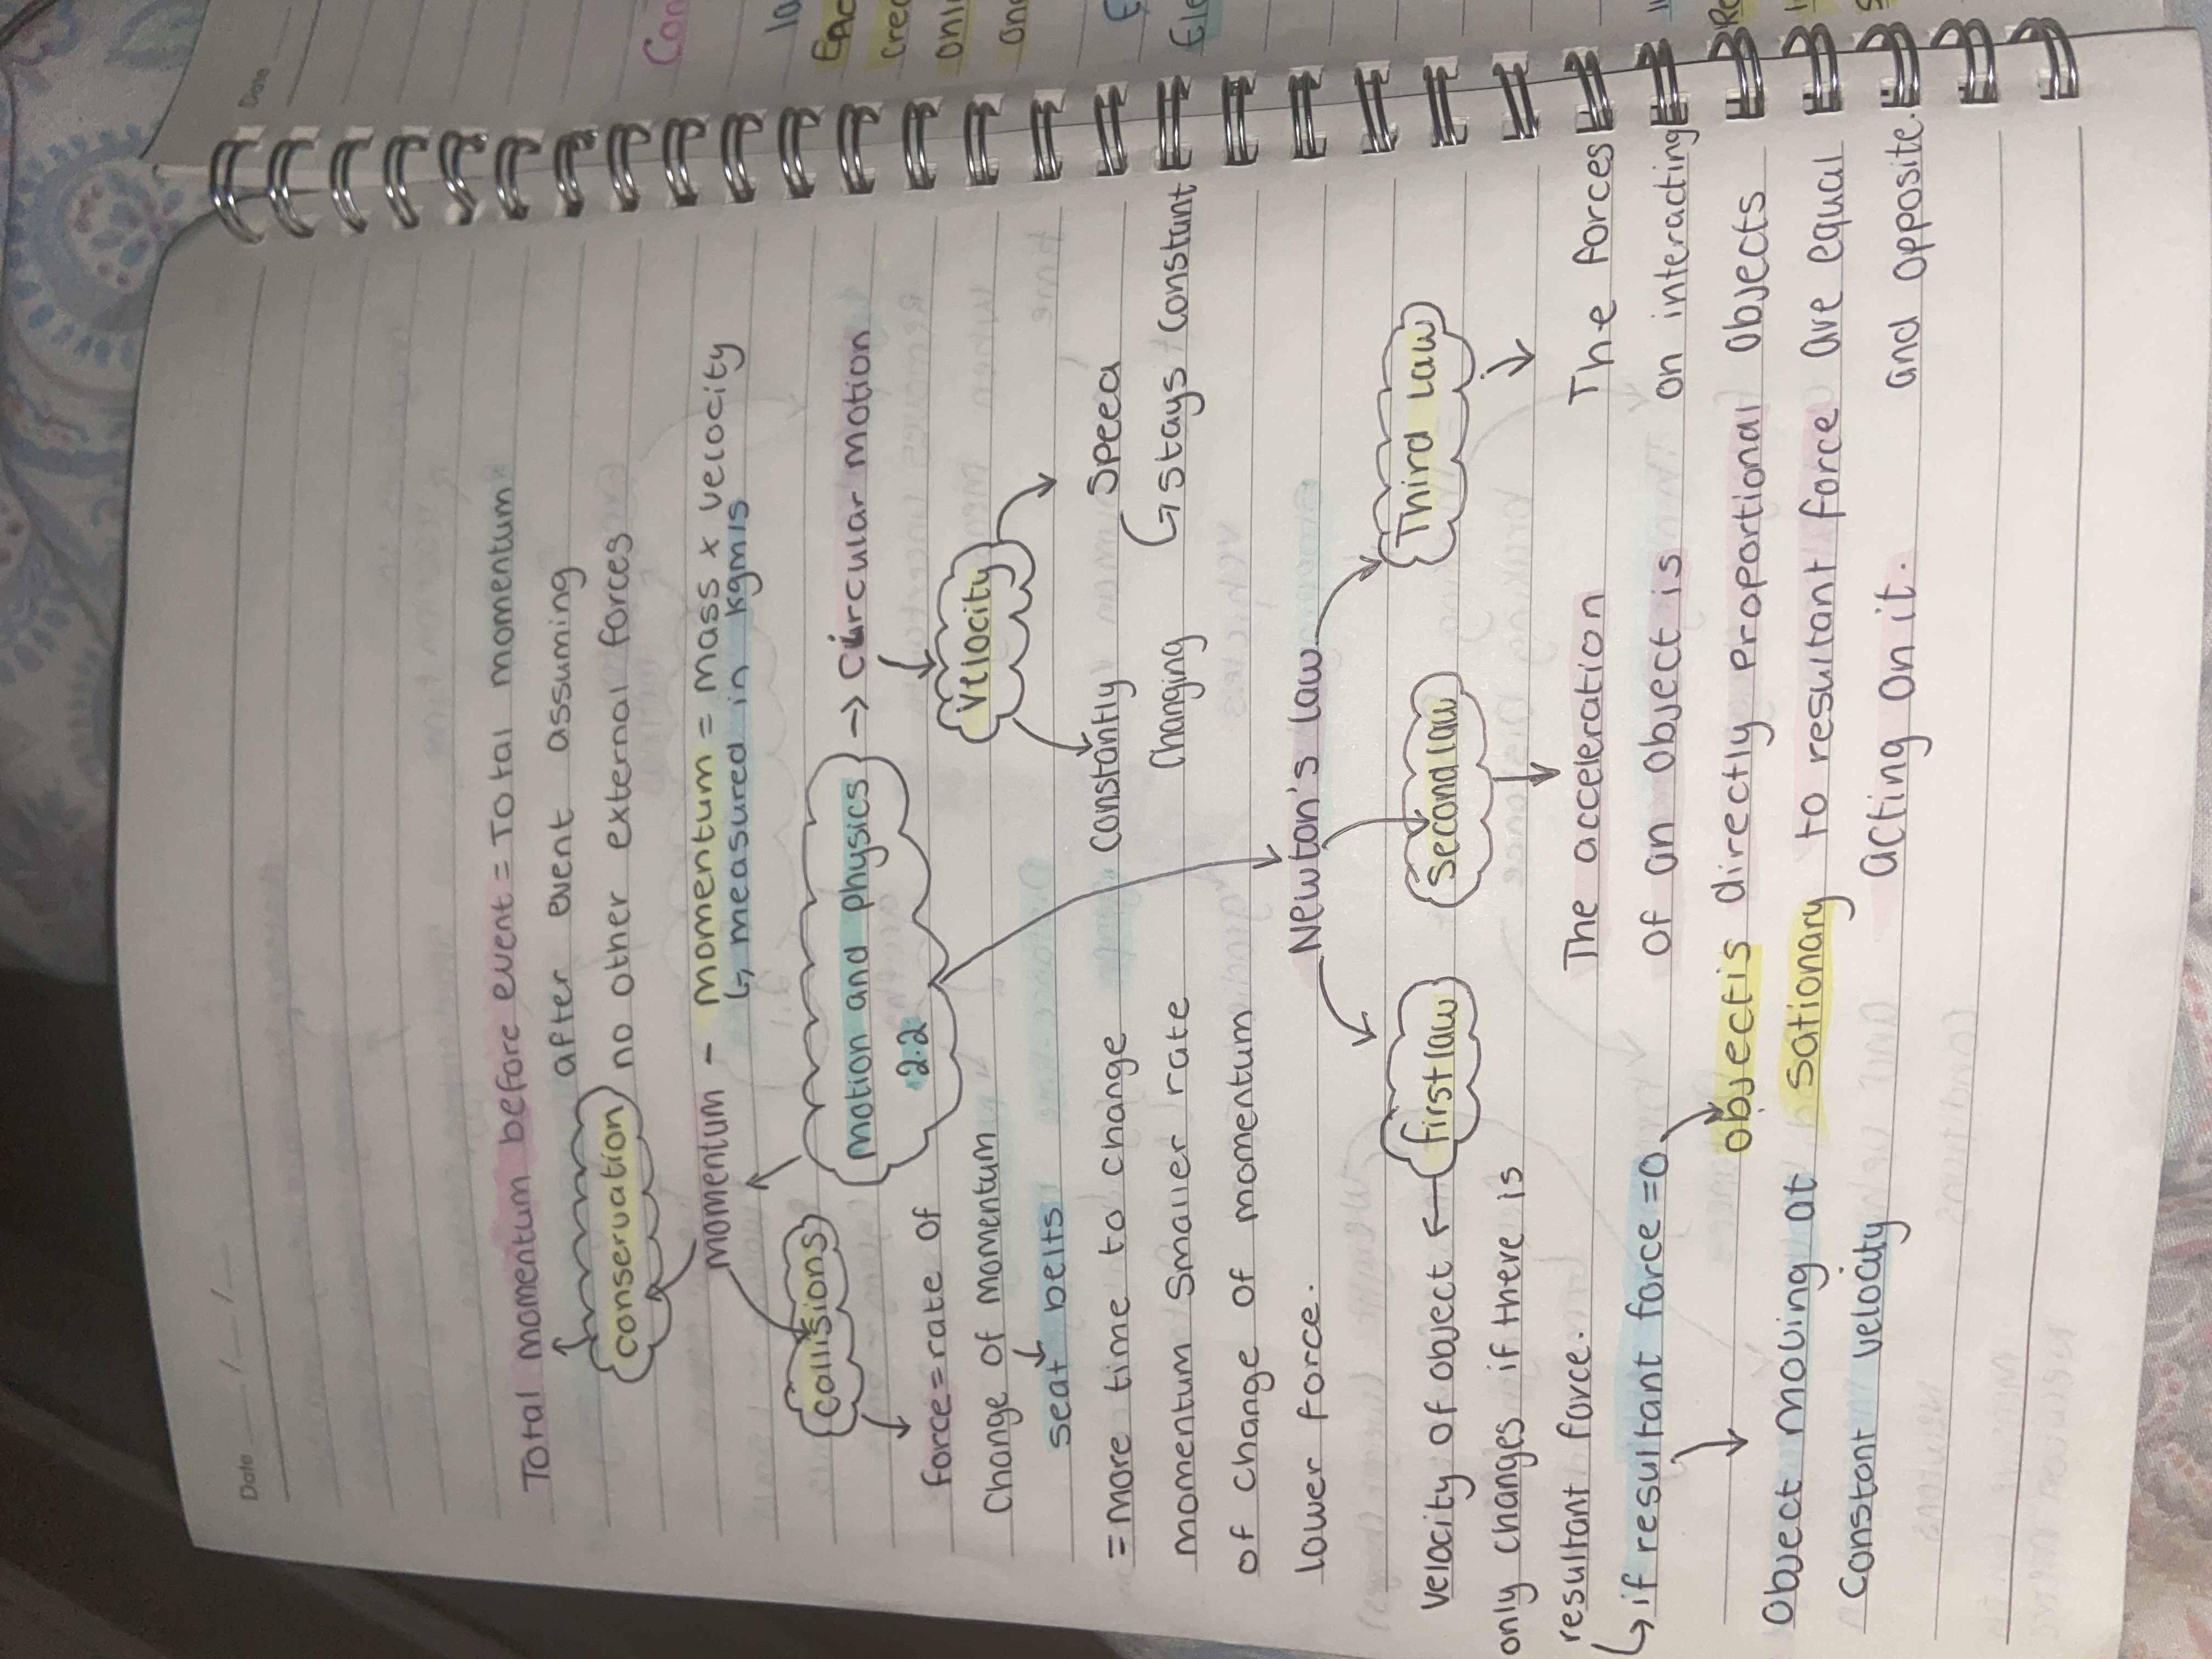 Date / /
Total momentum before event = Total momentum
after event assuming
no other external forces
conservation
momentum - momentum = mass x velocity
↳ measured in kgm/s
collisions
motion and physics
2.2
→ circular motion
velocity
constantly
changing
Speed
↳ stays constant
force = rate of
change of momentum
seat belts
= more time to change
momentum smaller rate
of change of momentum
lower force.
Newton's law
first law
velocity of object
only changes if there is
resultant force.
↳ if resultant force = 0
object is
sationary
object moving at
constant velocity
second law
The acceleration
of an object is
directly proportional
to resultant force
acting on it.
Third law
The forces
on interacting
objects
are equal
and opposite.
Date